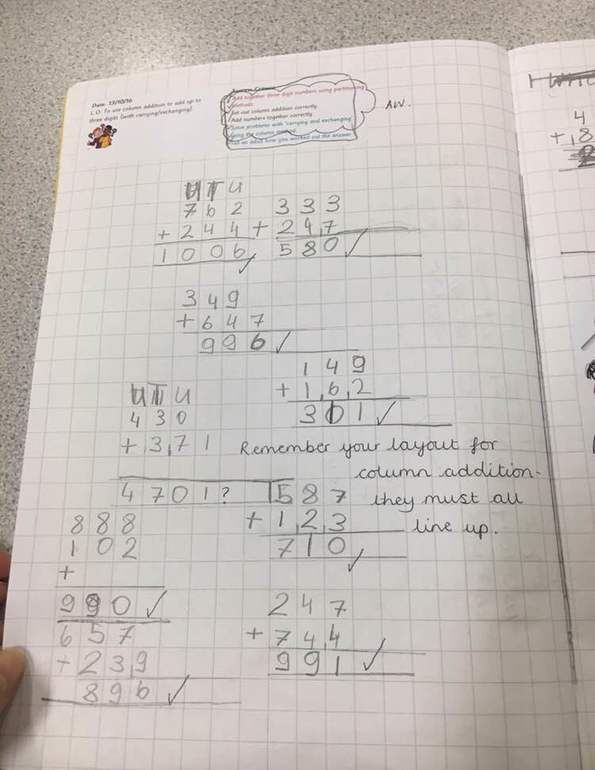 Date: 13/10/16
L.O: To use column addition to add up to
three digits (with carrying/exchanging)
Add together three digit numbers using partitioning
methods
Set out column addition correctly
Add numbers together correctly
Solve problems with 'carrying and exchanging'
using the column method
Tell an adult how you worked out the answer
AW.
H T U
7 6 2
+ 2 4 4
1 0 0 6 ✓
3 3 3
+ 2 4,7
5 8 0 ✓
3 4 9
+ 6 4 7
9 9 6 ✓
1 4 9
+ 1,6,2
3 1 1 ✓
H T U
4 3 0
+ 3,7 1
4 7 0 1 ?
Remember your layout for
column addition -
they must all
line up.
5 8 7
+ 1,2,3
7 1 0 ✓
8 8 8
1 0 2
+
9 9 0 ✓
2 4 7
+ 7 4,4
9 9 1 ✓
6 5 7
+ 2 3,9
8 9 6 ✓
4
+ 1 8